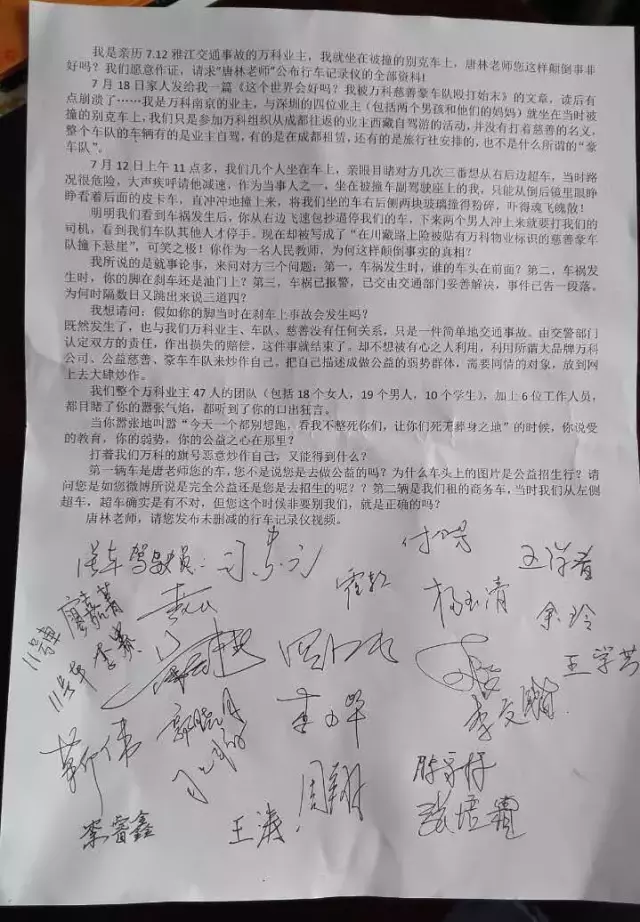 我是亲历 7.12 雅江交通事故的万科业主，我就坐在被撞的别克车上，唐林老师您这样颠倒事非
好吗？我们愿意作证，请求"唐林老师"公布行车记录仪的全部资料!
7 月 18 日家人发给我一篇《这个世界会好吗？我被万科慈善豪车队殴打始末》的文章，读后有
点崩溃了……我是万科南京的业主，与深圳的四位业主（包括两个男孩和他们的妈妈）就坐在当时被
撞的别克车上，我们只是参加万科组织从成都往返的业主西藏自驾游的活动，并没有打着慈善的名义，
整个车队的车辆有的是业主自驾，有的是在成都租赁，还有的是旅行社安排的，也不是什么所谓的"豪
车队"。
7 月 12 日上午 11 点多，我们几个人坐在车上，亲眼目睹对方几次三番想从右后边超车，当时路
况很危险，大声疾呼请他减速，作为当事人之一，坐在被撞车副驾驶座上的我，只能从倒后镜里眼睁
睁看着后面的皮卡车，直冲冲地撞上来，将我们坐的车右后侧两块玻璃撞得粉碎，吓得魂飞魄散！
明明我们看到车祸发生后，你从右边飞速包抄逼停我们的车，下来两个男人冲上来就要打我们的
司机，看到我们车队其他人才停手。现在却被写成了"在川藏路上险被贴有万科物业标识的慈善豪车
队撞下悬崖"，可笑之极！你作为一名人民教师，为何这样颠倒事实的真相？
我所说的是就事论事，来问对方三个问题：第一，车祸发生时，谁的车头在前面？第二，车祸发
生时，你的脚在刹车还是油门上？第三，车祸已报警，已交由交通部门妥善解决，事件已告一段落，
为何时隔数日又跳出来说三道四？
我想请问：假如你的脚当时在刹车上事故会发生吗？
既然发生了，也与我们万科业主、车队、慈善没有任何关系，只是一件简单地交通事故。由交警部门
认定双方的责任，作出损失的赔偿，这件事就结束了。却不想被有心之人利用，利用所谓大品牌万科
公司、公益慈善、豪车车队来炒作自己，把自己描述成做公益的弱势群体，需要同情的对象，放到网
上去大肆炒作。
我们整个万科业主 47 人的团队（包括 18 个女人，19 个男人，10 个学生），加上 6 位工作人员，
都目睹了你的嚣张气焰，都听到了你的口出狂言。
当你嚣张地叫嚣"今天一个都别想跑，看我不整死你们，让你们死无葬身之地"的时候，你说受
的教育，你的弱势，你的公益之心在那里？
打着我们万科的旗号恶意炒作自己，又能得到什么？
第一辆车是唐老师您的车，您不是说您是去做公益的吗？为什么车头上的图片是公益招生行？请
问您是如您微博所说是完全公益还是您是去招生的呢？？第二辆是我们租的商务车，当时我们从左侧
超车，超车确实是有不对，但您这个时候非要别我们，就是正确的吗？
唐林老师，请您发布未删减的行车记录仪视频。
杨玉清
余玲
11号车
11号车
王学芳
靳伟
李文
栾睿鑫
王涛
周翔